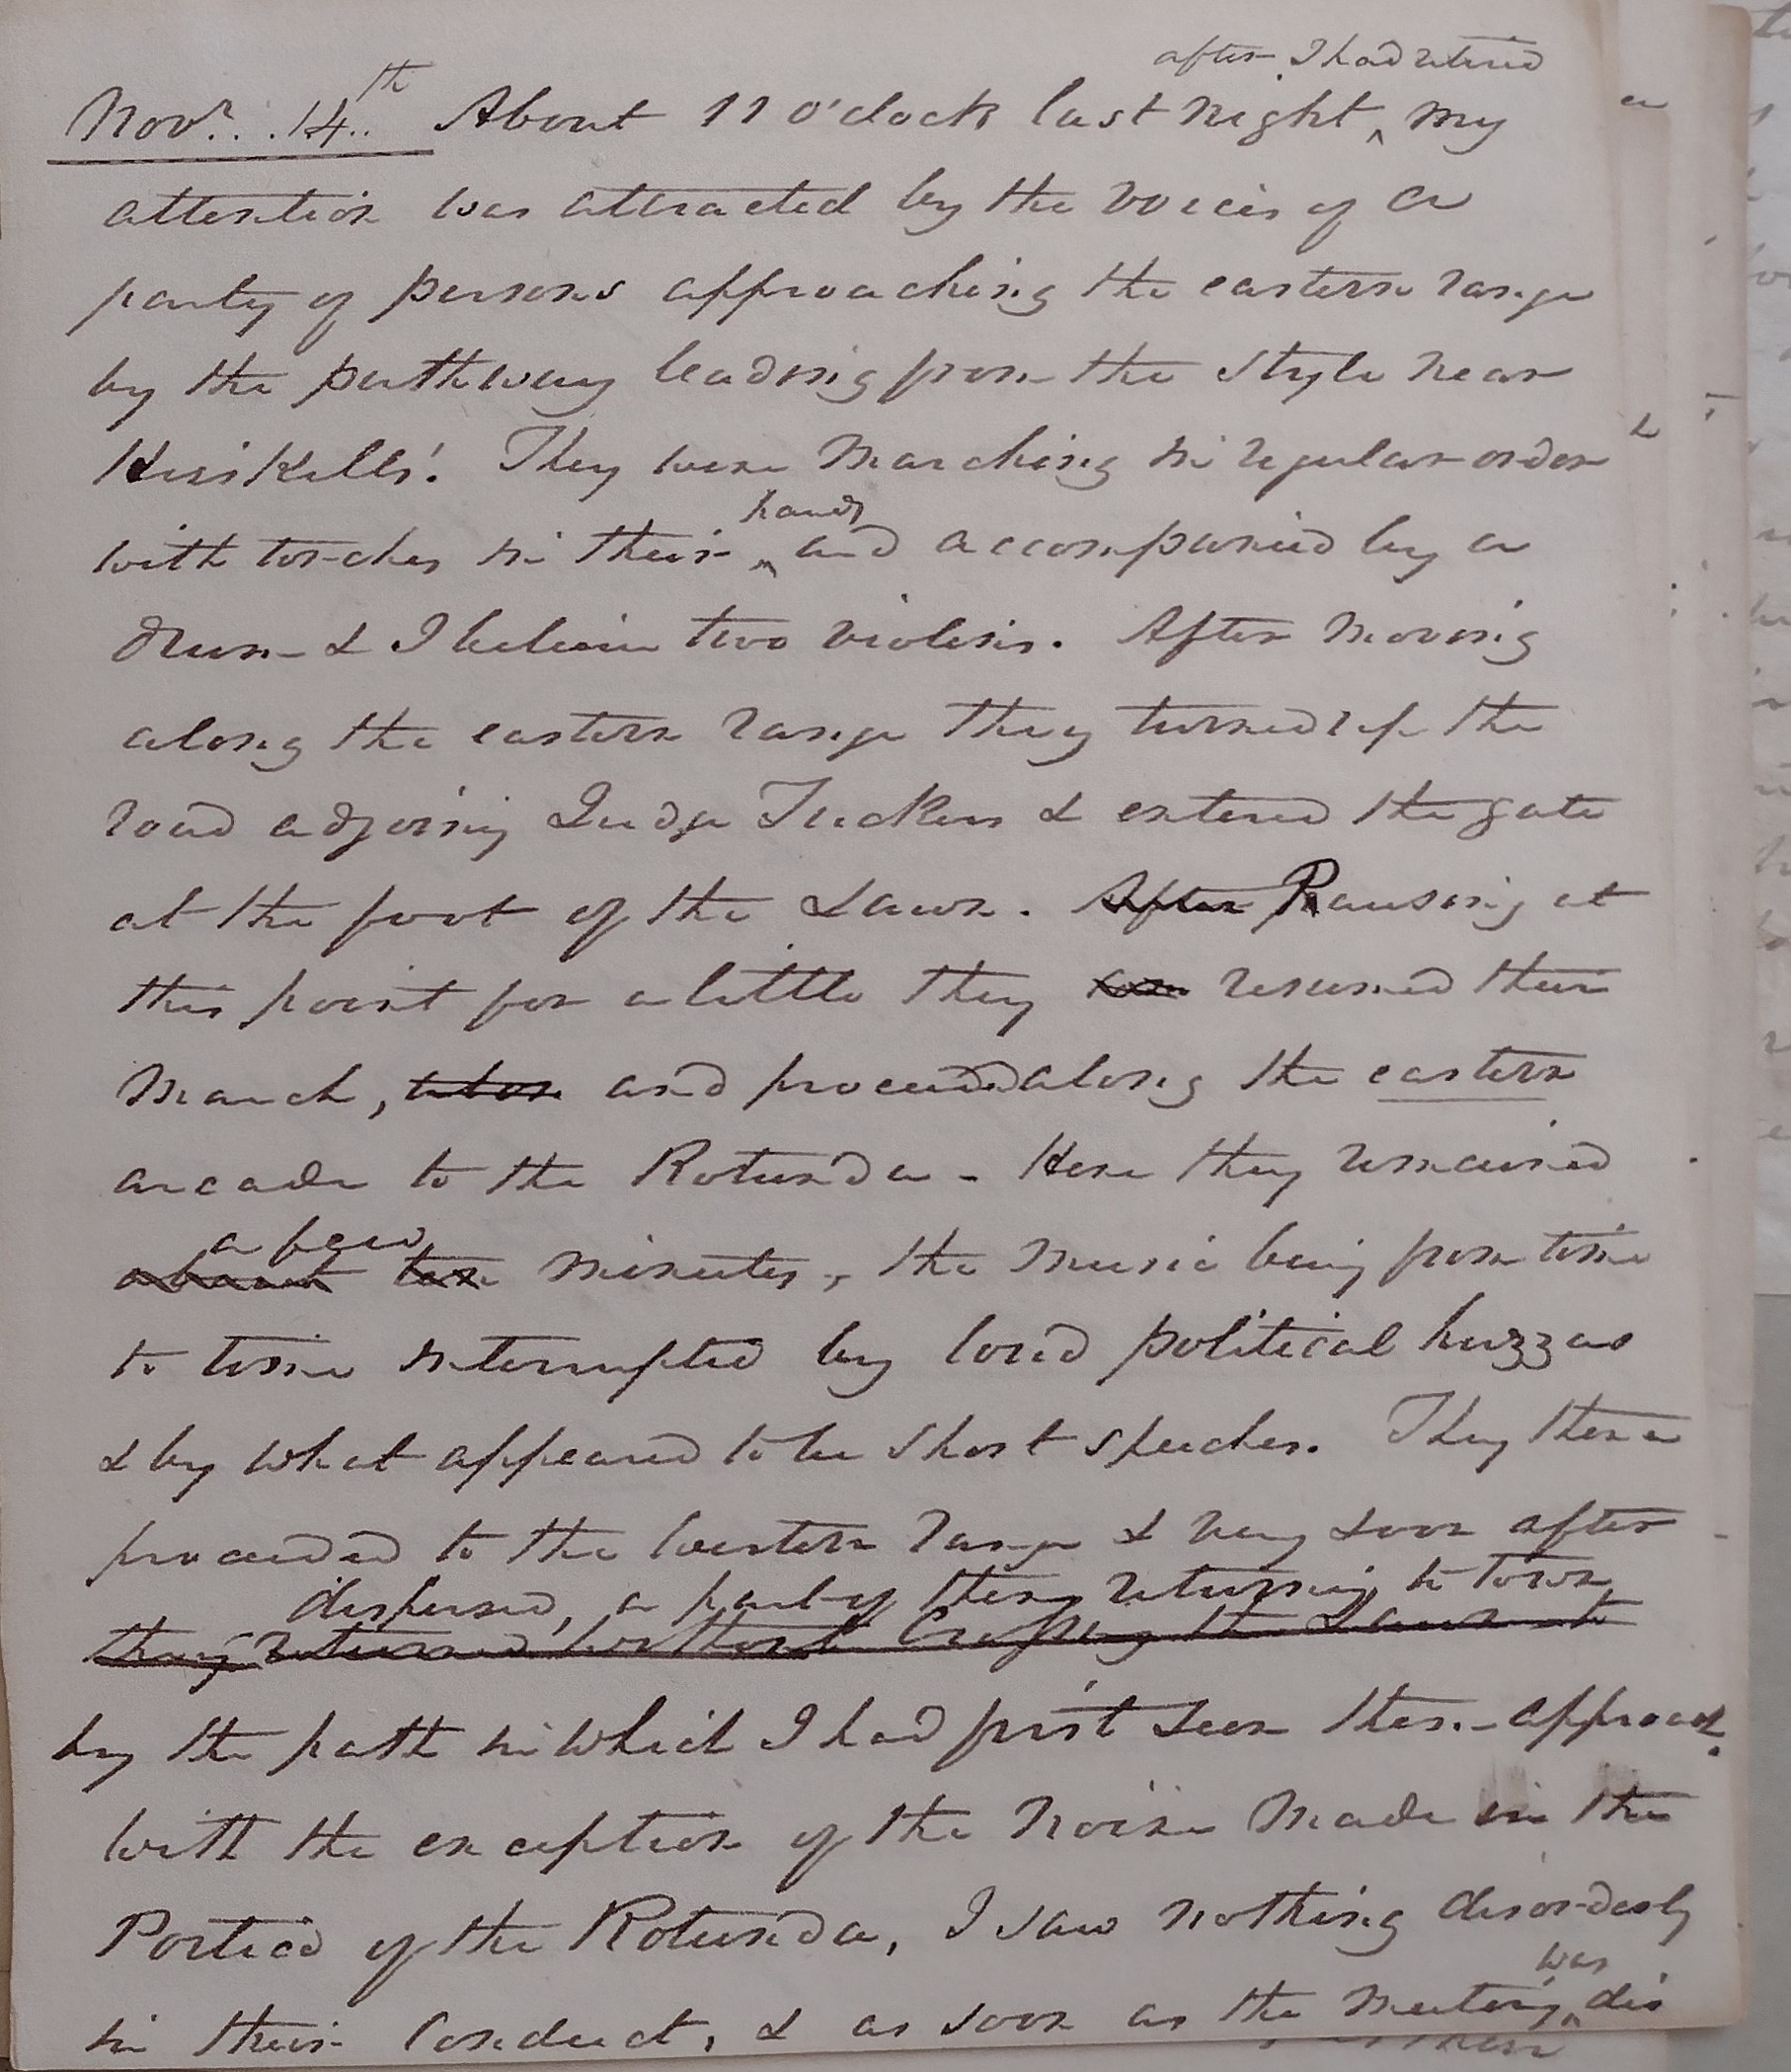 after I had retired
Novr. 14th About 11 o'clock last night ^ my
attention was attracted by the voices of a
party of persons approaching the eastern range
by the pathway leading from the Style near
Heiskells'. They were marching in regular order
hands
with torches in their ^ and accompanied by a
drum & I believe two violins. After moving
along the eastern range they turned up the
road adjoining Judge Tuckers & entered the gate
at the foot of the Lawn. After Pausing at
this point for a little they resumed their
march, and proceeded along the eastern
arcade to the Rotunda - Here they remained
a few
about ten minutes, the music being from time
to time interrupted by loud political huzzas
& by what appeared to be short speeches. They then
proceeded to the western range & very soon after
dispersed, a part of them returning to town
they returned without crossing the Lawn to
by the path in which I had first seen them approach.
With the exception of the noise made in the
Portico of the Rotunda, I saw nothing disorderly
was
in their conduct, & as soon as the meeting ^ dis